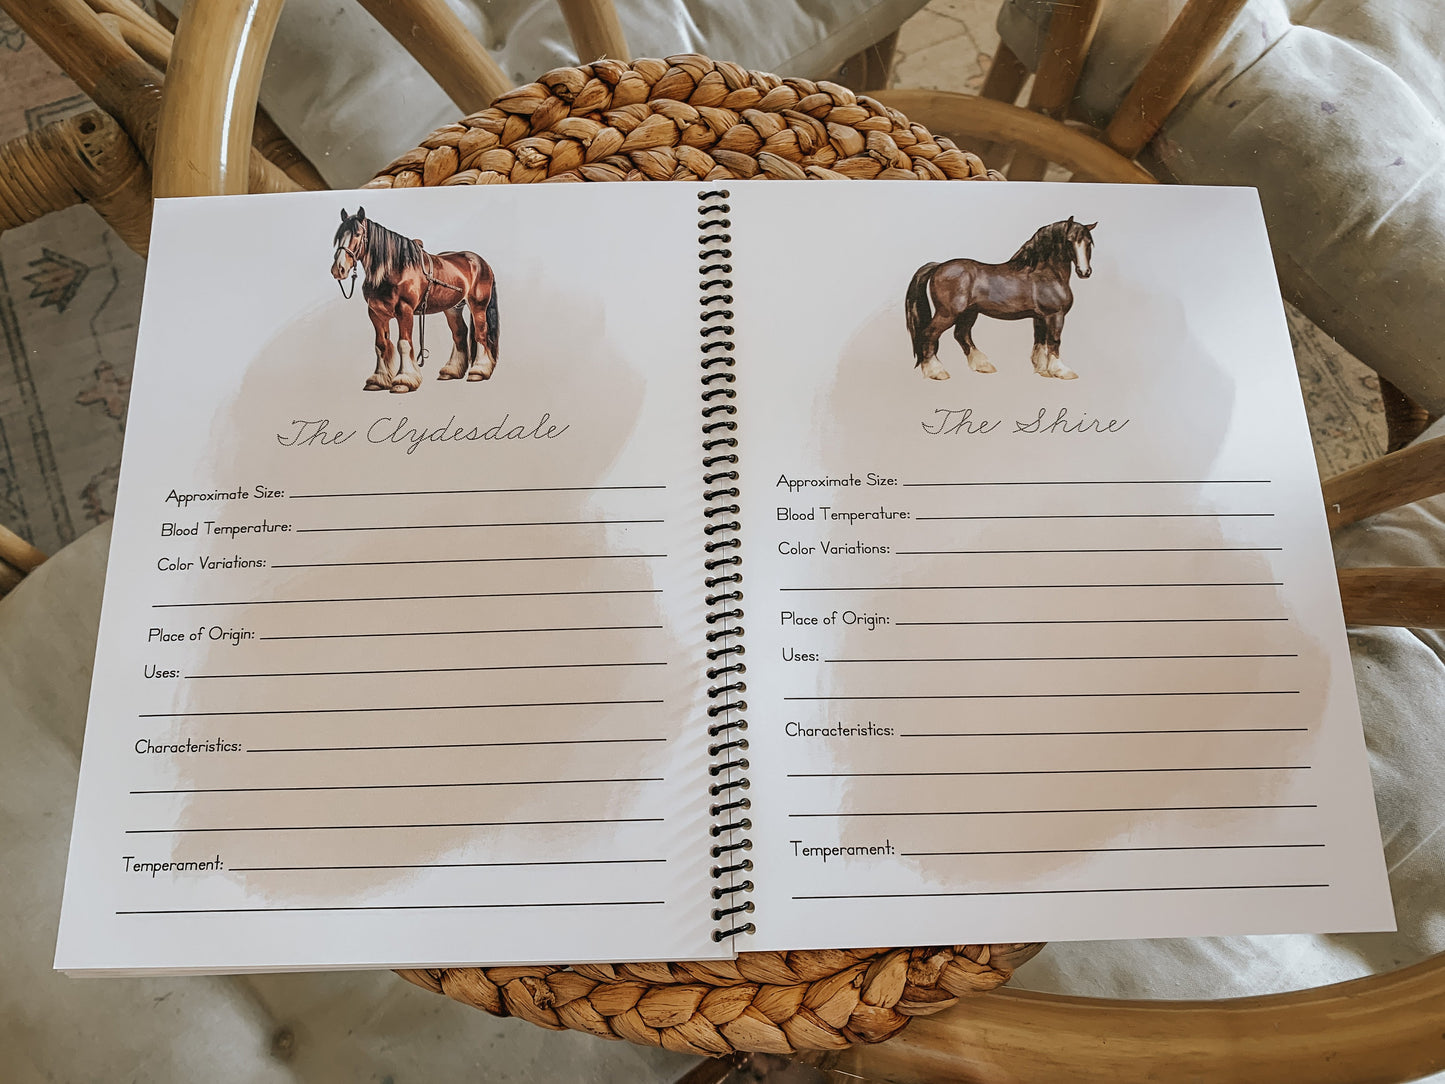 The Clydesdale
Approximate Size:
Blood Temperature:
Color Variations:
Place of Origin:
Uses:
Characteristics:
Temperament:
The Shire
Approximate Size:
Blood Temperature:
Color Variations:
Place of Origin:
Uses:
Characteristics:
Temperament: